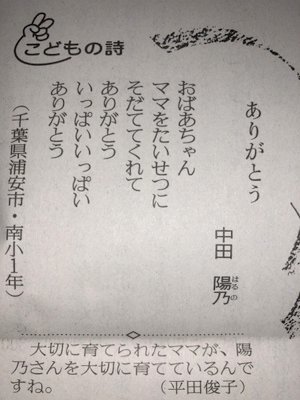 こどもの詩
ありがとう
中田 陽乃
はるの
おばあちゃん
ママをたいせつに
そだててくれて
ありがとう
いっぱいいっぱい
ありがとう
(千葉県浦安市・南小1年)
大切に育てられたママが、陽
乃さんを大切に育てているんで
すね。 (平田俊子)